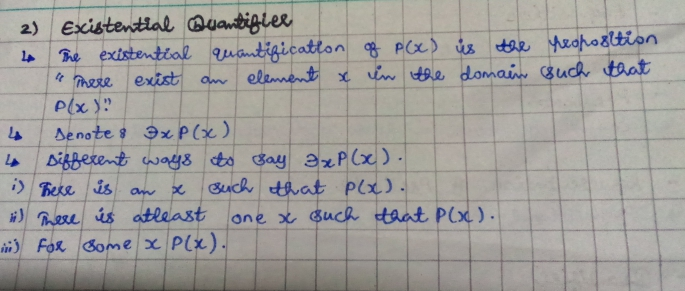 2) Existential Quantifier
↳ The existential quantification of P(x) is the proposition
" There exist an element x in the domain such that
P(x)."
↳ Denote : ∃xP(x)
↳ Different ways to say ∃xP(x).
i) There is an x such that P(x).
ii) There is atleast one x such that P(x).
iii) For some x P(x).